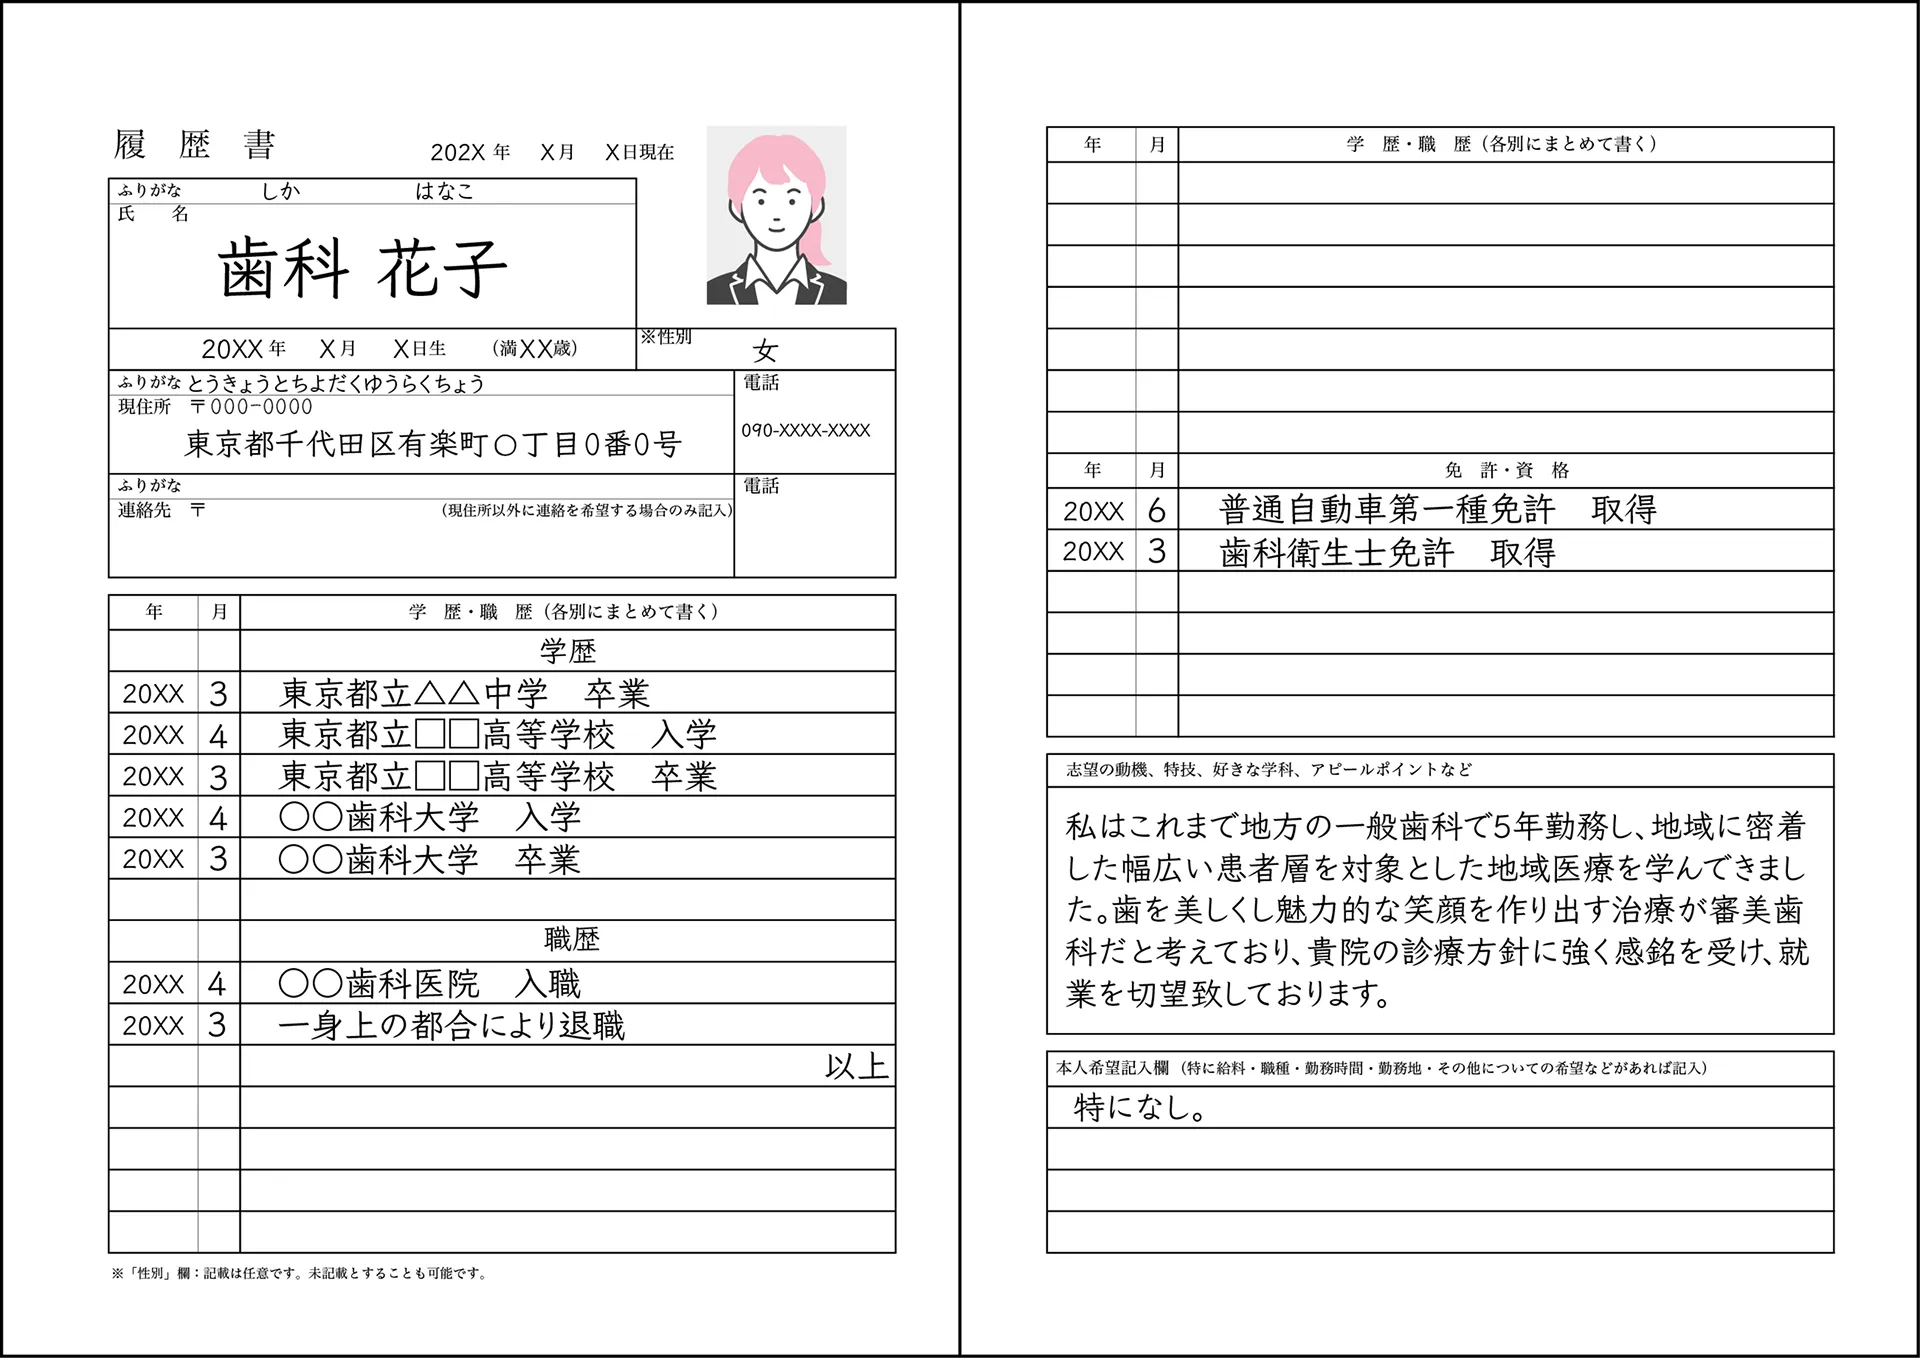 履 歴 書
202X 年 X月 X日現在
ふりがな しか はなこ
氏 名
歯科 花子
20XX 年 X月 X日生 (満XX歳)
※性別
女
ふりがな とうきょうとちよだくゆうらくちょう
現住所 〒000-0000
東京都千代田区有楽町○丁目0番0号
電話
090-XXXX-XXXX
ふりがな
連絡先 〒 (現住所以外に連絡を希望する場合のみ記入)
電話
年 月 学 歴・職 歴(各別にまとめて書く)
学歴
20XX 3 東京都立△△中学 卒業
20XX 4 東京都立□□高等学校 入学
20XX 3 東京都立□□高等学校 卒業
20XX 4 ○○歯科大学 入学
20XX 3 ○○歯科大学 卒業
職歴
20XX 4 ○○歯科医院 入職
20XX 3 一身上の都合により退職
以上
※「性別」欄:記載は任意です。未記載とすることも可能です。
年 月 学 歴・職 歴(各別にまとめて書く)
年 月 免 許・資 格
20XX 6 普通自動車第一種免許 取得
20XX 3 歯科衛生士免許 取得
志望の動機、特技、好きな学科、アピールポイントなど
私はこれまで地方の一般歯科で5年勤務し、地域に密着
した幅広い患者層を対象とした地域医療を学んできまし
た。歯を美しくし魅力的な笑顔を作り出す治療が審美歯
科だと考えており、貴院の診療方針に強く感銘を受け、就
業を切望致しております。
本人希望記入欄(特に給料・職種・勤務時間・勤務地・その他についての希望などがあれば記入)
特になし。